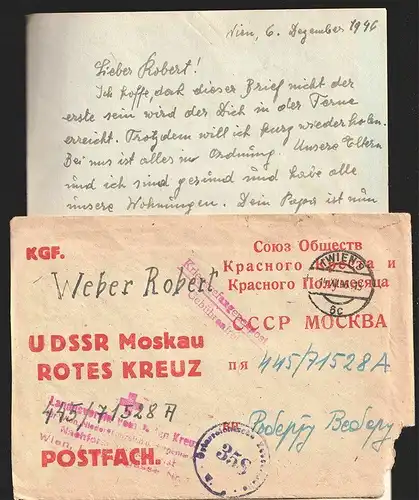 Wien, 6. Dezember 1946
Lieber Robert!
Ich hoffe, dak dieser Brief nicht der
erste sein wird der Dich in der Ferne
erreicht. Trotzdem will ich kurz wiederholen.
Bei uns ist alles in Ordnung. Unsere Eltern
und ich sind gesund und habe alle
unsere Wohnungen. Dein Papa ist nun
KGF.
Weber Robert
UDSSR Moskau
ROTES KREUZ
445/71528A
POSTFACH.
Союз Обществ
Красного Креста и
Красного Полумесяца
СССР МОСКВА
п я 445/71528A
Роберту Веберу
Kriegsgefangenenpost
Gebührenfrei
WIEN
Landesverein vom Roten Kreuz
Wien,
358